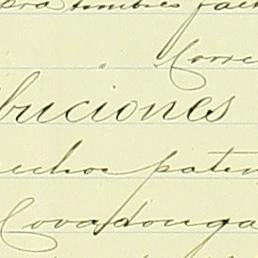 ara timbres fac
Corre
buciones
echos paten
Covadonga